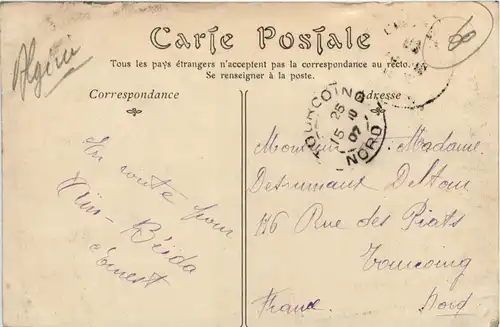 Algérie
60
Carte Postale
Tous les pays étrangers n'acceptent pas la correspondance au recto.
Se renseigner à la poste.
Correspondance
Adresse
TOURCOING
15 25
10 07
NORD
En route pour
Aïn-Béida
Ernest
Monsieur Madame
Desrumaux Deltour
116 Rue des Piats
Tourcoing
France. Nord